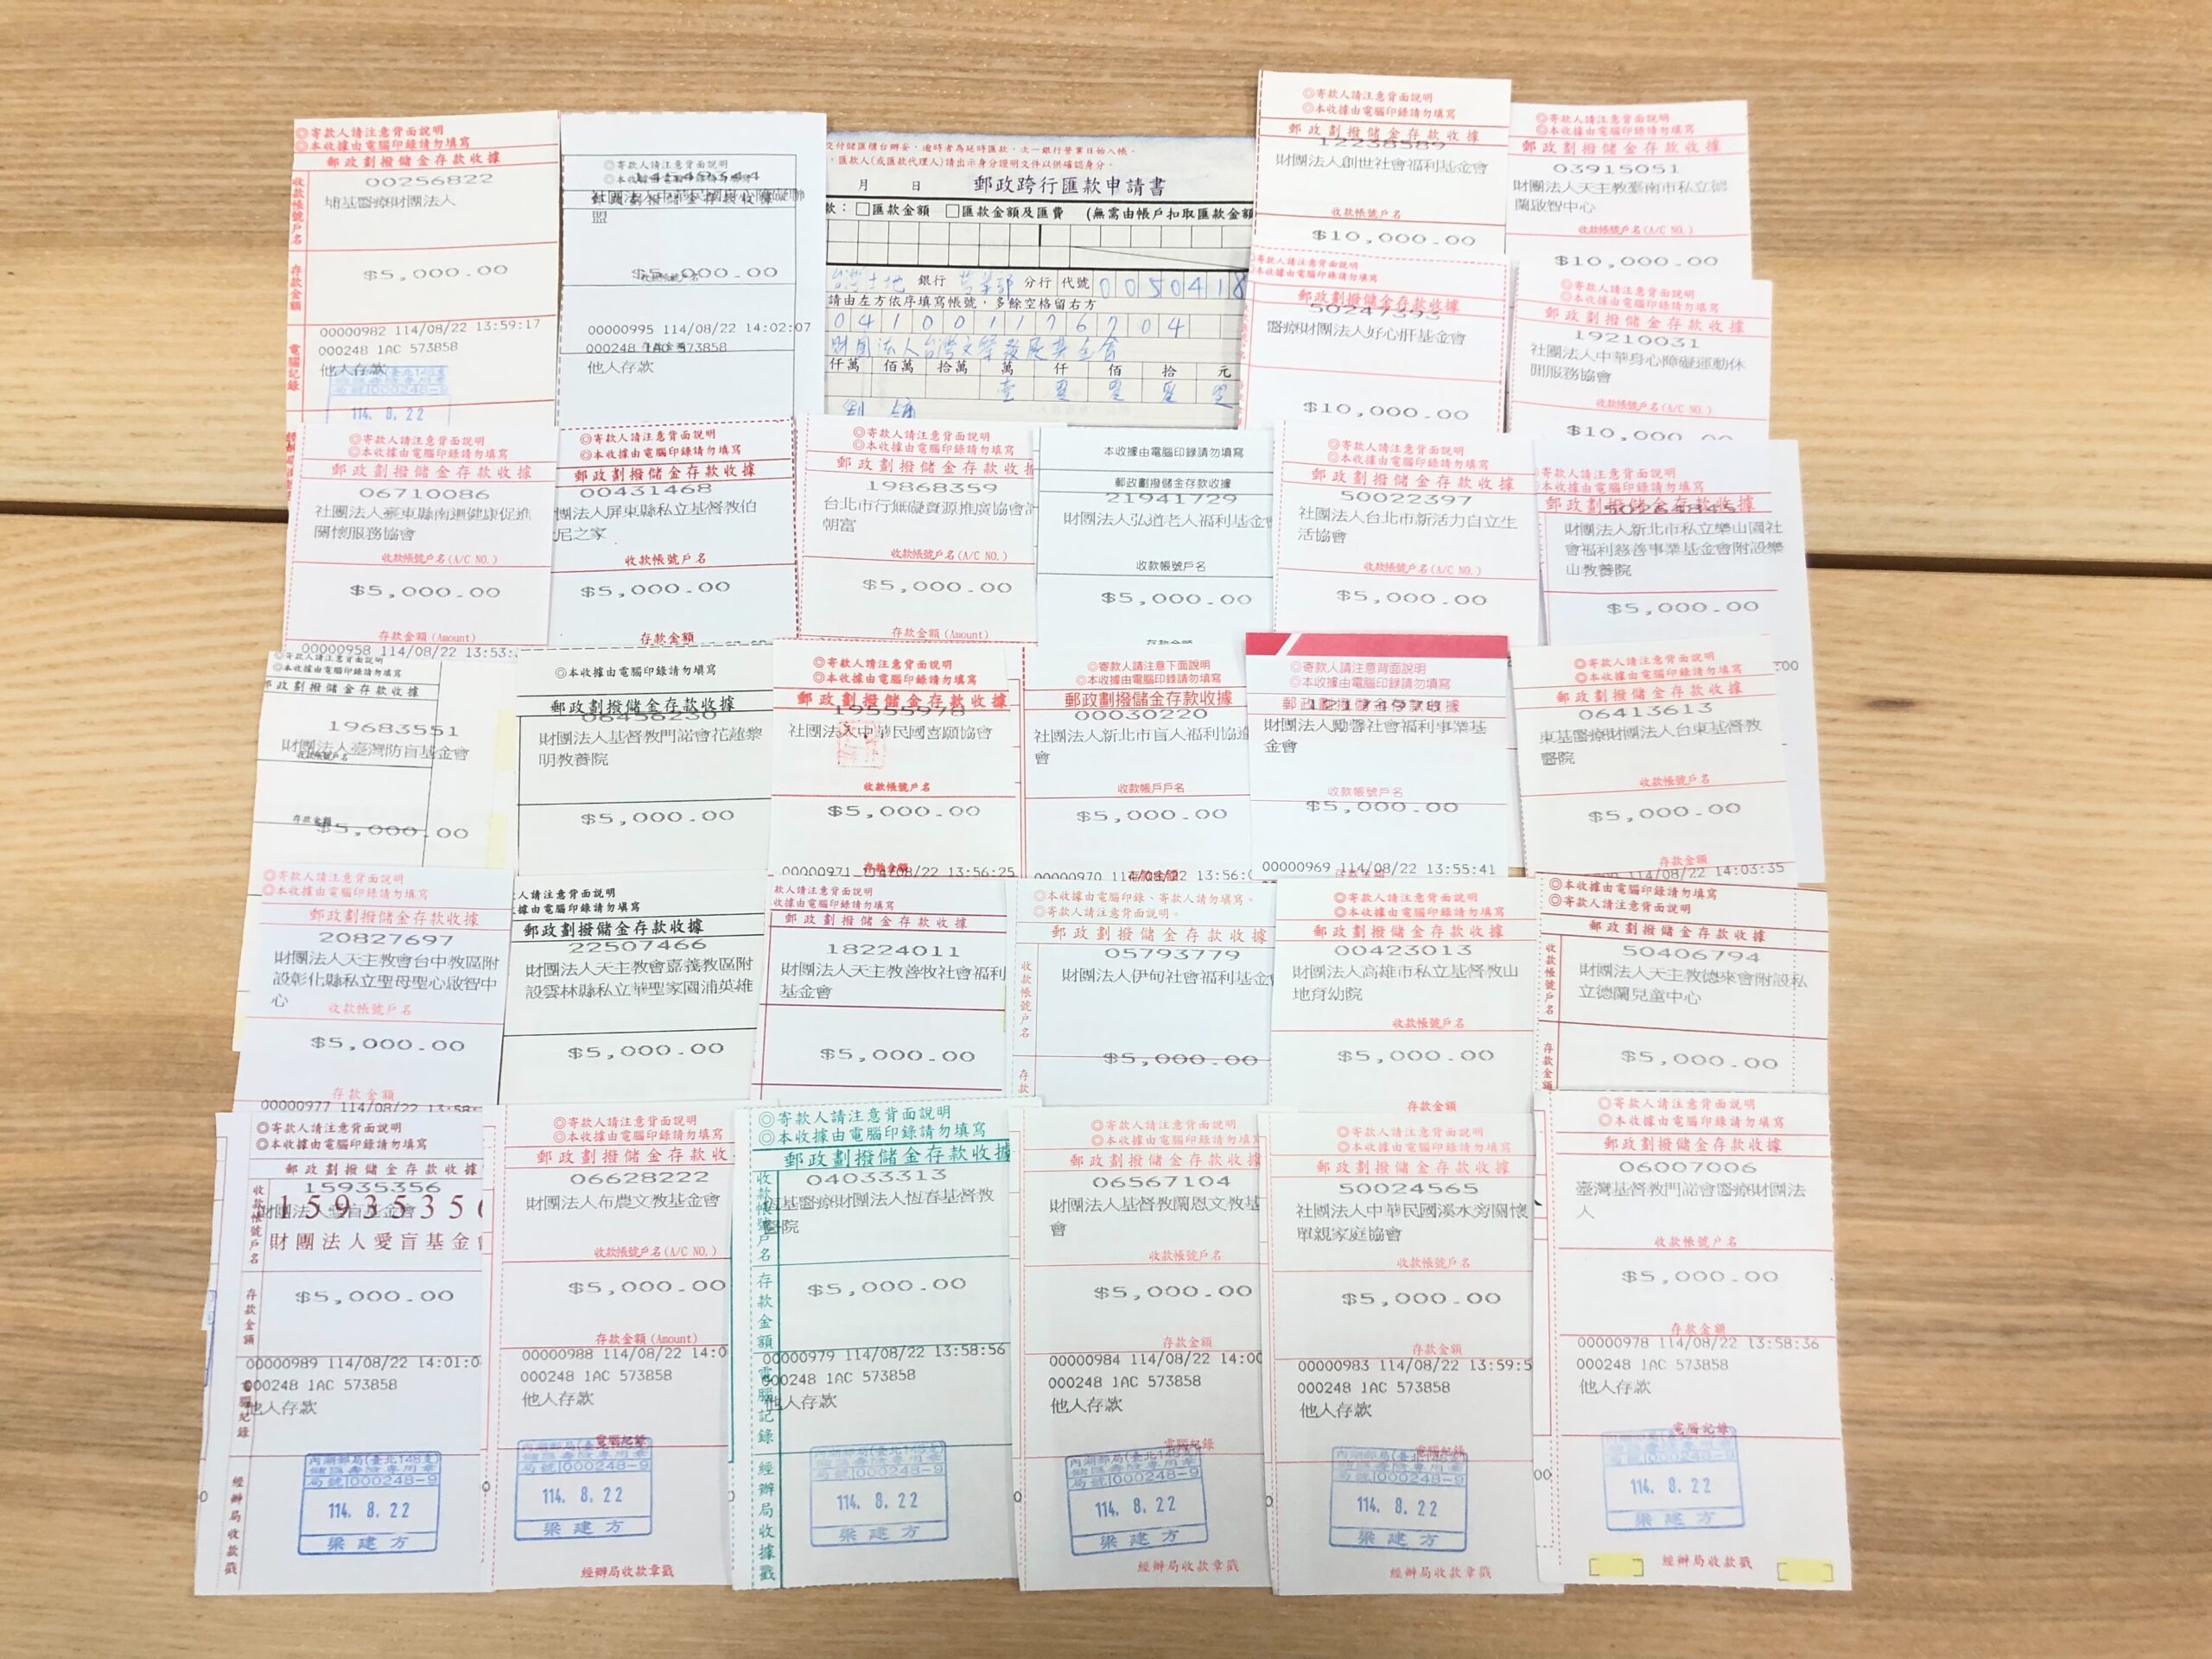 ◎寄款人請注意背面說明
◎本收據由電腦印錄請勿填寫
郵政劃撥儲金存款收據
收款帳號戶名
00256822
埔基醫療財團法人
存款金額
$5,000.00
電腦記錄
00000982 114/08/22 13:59:17
000248 1AC 573858
他人存款
114. 8. 22
◎寄款人請注意背面說明
盟
$5,000.00
00000995 114/08/22 14:02:07
000248 1AC 573858
他人存款
交付儲匯櫃台辦妥，逾時者為延時匯款，次一銀行營業日始入帳。
，匯款人(或匯款代理人)請出示身分證明文件以供確認身分。
月 日 郵政跨行匯款申請書
款：□匯款金額 □匯款金額及匯費 (無需由帳戶扣取匯款金額
台灣土地 銀行 營業部 分行 代號 0050418
請由左方依序填寫帳號，多餘空格留右方
041001176704
財團法人台灣文學發展基金會
仟萬 佰萬 拾萬 萬 仟 佰 拾 元
壹 零 零 零 零
◎寄款人請注意背面說明
◎本收據由電腦印錄請勿填寫
郵政劃撥儲金存款收據
12238589
財團法人創世社會福利基金會
收款帳號戶名
$10,000.00
◎寄款人請注意背面說明
◎本收據由電腦印錄請勿填寫
郵政劃撥儲金存款收據
03915051
財團法人天主教臺南市私立德
蘭啟智中心
收款帳號戶名(A/C NO.)
$10,000.00
◎寄款人請注意背面說明
◎本收據由電腦印錄請勿填寫
郵政劃撥儲金存款收據
50247393
醫療財團法人好心肝基金會
$10,000.00
◎寄款人請注意背面說明
◎本收據由電腦印錄請勿填寫
郵政劃撥儲金存款收據
19210031
社團法人中華身心障礙運動休
閒服務協會
收款帳號戶名(A/C NO.)
$10,000.00
◎寄款人請注意背面說明
◎本收據由電腦印錄請勿填寫
郵政劃撥儲金存款收據
06710086
社團法人臺東縣南迴健康促進
關懷服務協會
收款帳號戶名(A/C NO.)
$5,000.00
存款金額(Amount)
00000958 114/08/22 13:53:
◎寄款人請注意背面說明
◎本收據由電腦印錄請勿填寫
郵政劃撥儲金存款收據
00431468
團法人屏東縣私立基督教伯
尼之家
收款帳號戶名
$5,000.00
存款金額
◎寄款人請注意背面說明
◎本收據由電腦印錄請勿填寫
郵政劃撥儲金存款收據
19868359
台北市行無礙資源推廣協會
朝富
收款帳號戶名(A/C NO.)
$5,000.00
存款金額(Amount)
本收據由電腦印錄請勿填寫
郵政劃撥儲金存款收據
21941729
財團法人弘道老人福利基金會
收款帳號戶名
$5,000.00
存款金額
◎寄款人請注意背面說明
◎本收據由電腦印錄請勿填寫
郵政劃撥儲金存款收據
50022397
社團法人台北市新活力自立生
活協會
收款帳號戶名(A/C NO.)
$5,000.00
寄款人請注意背面說明
◎本收據由電腦印錄請勿填寫
郵政劃撥儲金存款收據
財團法人新北市私立樂山園社
會福利慈善事業基金會附設樂
山教養院
$5,000.00
◎寄款人請注意背面說明
◎本收據由電腦印錄請勿填寫
郵政劃撥儲金存款收據
19683551
財團法人臺灣防盲基金會
收款帳號戶名
存款金額
$5,000.00
◎本收據由電腦印錄請勿填寫
郵政劃撥儲金存款收據
06456230
財團法人基督教門諾會花蓮黎
明教養院
$5,000.00
◎寄款人請注意背面說明
◎本收據由電腦印錄請勿填寫
郵政劃撥儲金存款收據
19555978
社團法人中華民國喜願協會
收款帳號戶名
$5,000.00
存款金額
00000971 114/08/22 13:56:25
◎寄款人請注意下面說明
◎本收據由電腦印錄請勿填寫
郵政劃撥儲金存款收據
00030220
社團法人新北市盲人福利協進
會
收款帳戶戶名
$5,000.00
00000970 114/08/22 13:56:0
◎寄款人請注意背面說明
◎本收據由電腦印錄請勿填寫
郵政劃撥儲金存款收據
財團法人勵馨社會福利事業基
金會
收款帳號戶名
$5,000.00
00000969 114/08/22 13:55:41
◎寄款人請注意背面說明
◎本收據由電腦印錄請勿填寫
郵政劃撥儲金存款收據
06413613
東基醫療財團法人台東基督教
醫院
收款帳號戶名
$5,000.00
存款金額
114/08/22 14:03:35
◎寄款人請注意背面說明
◎本收據由電腦印錄請勿填寫
郵政劃撥儲金存款收據
20827697
財團法人天主教會台中教區附
設彰化縣私立聖母聖心啟智中
心
收款帳號戶名
$5,000.00
存款金額
00000977 114/08/22 13:58:
人請注意背面說明
據由電腦印錄請勿填寫
郵政劃撥儲金存款收據
22507466
財團法人天主教會嘉義教區附
設雲林縣私立華聖家園浦英雄
$5,000.00
款人請注意背面說明
收據由電腦印錄請勿填寫
郵政劃撥儲金存款收據
18224011
財團法人天主教善牧社會福利
基金會
$5,000.00
◎本收據由電腦印錄、寄款人請勿填寫。
◎寄款人請注意背面說明。
郵政劃撥儲金存款收據
收款帳號戶名
05793779
財團法人伊甸社會福利基金會
存款
$5,000.00
◎寄款人請注意背面說明
◎本收據由電腦印錄請勿填寫
郵政劃撥儲金存款收據
00423013
財團法人高雄市私立基督教山
地育幼院
收款帳號戶名
$5,000.00
存款金額
◎本收據由電腦印錄請勿填寫
◎寄款人請注意背面說明
郵政劃撥儲金存款收據
收款帳號戶名
50406794
財團法人天主教德來會附設私
立德蘭兒童中心
存款金額
$5,000.00
◎寄款人請注意背面說明
◎本收據由電腦印錄請勿填寫
郵政劃撥儲金存款收據
收款帳號戶名
15935356
財團法人愛盲基金會
1593535
財團法人愛盲基金
存款金額
$5,000.00
00000989 114/08/22 14:01:0
000248 1AC 573858
他人存款
電腦紀錄
內湖郵局(臺北148支)
儲匯壽險專用章
局號 000248-9
114. 8. 22
梁建方
經辦局收款戳
◎寄款人請注意背面說明
◎本收據由電腦印錄請勿填寫
郵政劃撥儲金存款收
06628222
財團法人布農文教基金會
收款帳號戶名(A/C NO.)
$5,000.00
存款金額(Amount)
00000988 114/08/22 14:0
000248 1AC 573858
他人存款
電腦紀錄
內湖郵局(臺北148支)
儲匯壽險專用章
局號 000248-9
114. 8. 22
梁建方
經辦局收款章戳
◎寄款人請注意背面說明
◎本收據由電腦印錄請勿填寫
郵政劃撥儲金存款收據
收款帳號戶名
04033313
恆基醫療財團法人恆春基督教
醫院
存款金額
$5,000.00
00000979 114/08/22 13:58:56
000248 1AC 573858
他人存款
電腦記錄
內湖郵局(臺北148支)
儲匯壽險專用章
局號 000248-9
114. 8. 22
梁建方
經辦局收據戳
◎寄款人請注意背面說明
◎本收據由電腦印錄請勿填寫
郵政劃撥儲金存款收據
06567104
財團法人基督教蘭恩文教基
會
收款帳號戶名
$5,000.00
存款金額
00000984 114/08/22 14:00
000248 1AC 573858
他人存款
電腦紀錄
內湖郵局(臺北148支)
儲匯壽險專用章
局號 000248-9
114. 8. 22
梁建方
經辦局收款章戳
◎寄款人請注意背面說明
◎本收據由電腦印錄請勿填寫
郵政劃撥儲金存款收據
50024565
社團法人中華民國溪水旁關懷
單親家庭協會
收款帳號戶名
$5,000.00
存款金額
00000983 114/08/22 13:59:5
000248 1AC 573858
他人存款
電腦紀錄
內湖郵局(臺北148支)
儲匯壽險專用章
局號 000248-9
114. 8. 22
梁建方
經辦局收款章戳
◎寄款人請注意背面說明
◎本收據由電腦印錄請勿填寫
郵政劃撥儲金存款收據
06007006
臺灣基督教門諾會醫療財團法
人
收款帳號戶名
$5,000.00
存款金額
00000978 114/08/22 13:58:36
000248 1AC 573858
他人存款
電腦記錄
局號 000248-9
114. 8. 22
梁建方
經辦局收款戳